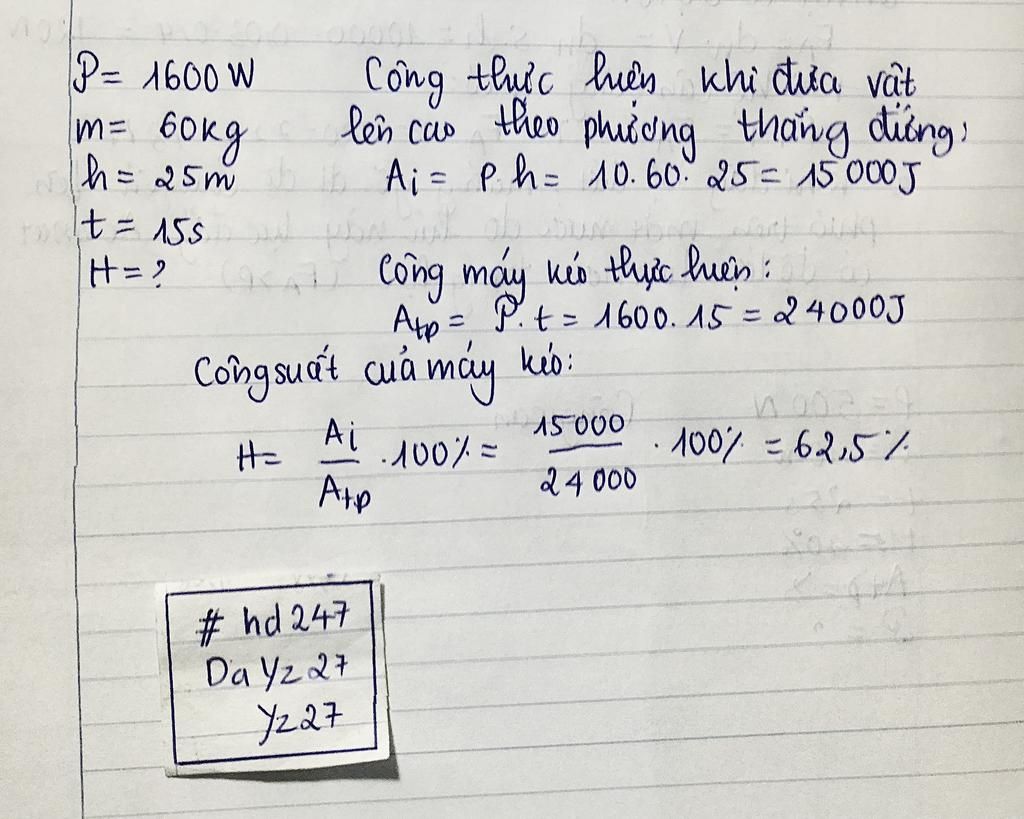 P = 1600W Công thực hiện khi đưa vật
m = 60kg lên cao theo phương thẳng đứng:
h = 25m Ai = P.h = 10.60.25 = 15000J
t = 15s
H = ? Công máy kéo thực hiện:
Atp = P.t = 1600.15 = 24000J
Công suất của máy kéo:
H = Ai/Atp .100% = 15000/24000 .100% = 62,5%
# hd247
Da Yz27
Yz27